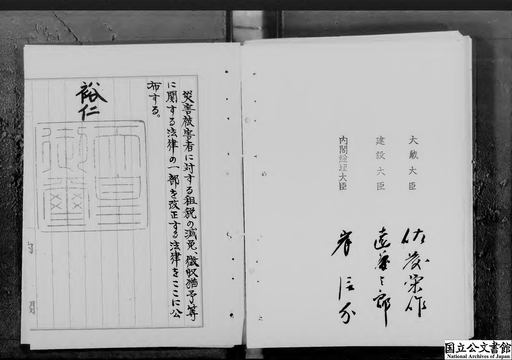 災害被害者に対する租税の減免、徴収猶予等
に関する法律の一部を改正する法律をここに公
布する。
裕仁
天皇
御璽
大蔵大臣 佐藤栄作
建設大臣 遠藤三郎
内閣総理大臣 岸信介
国立公文書館
National Archives of Japan